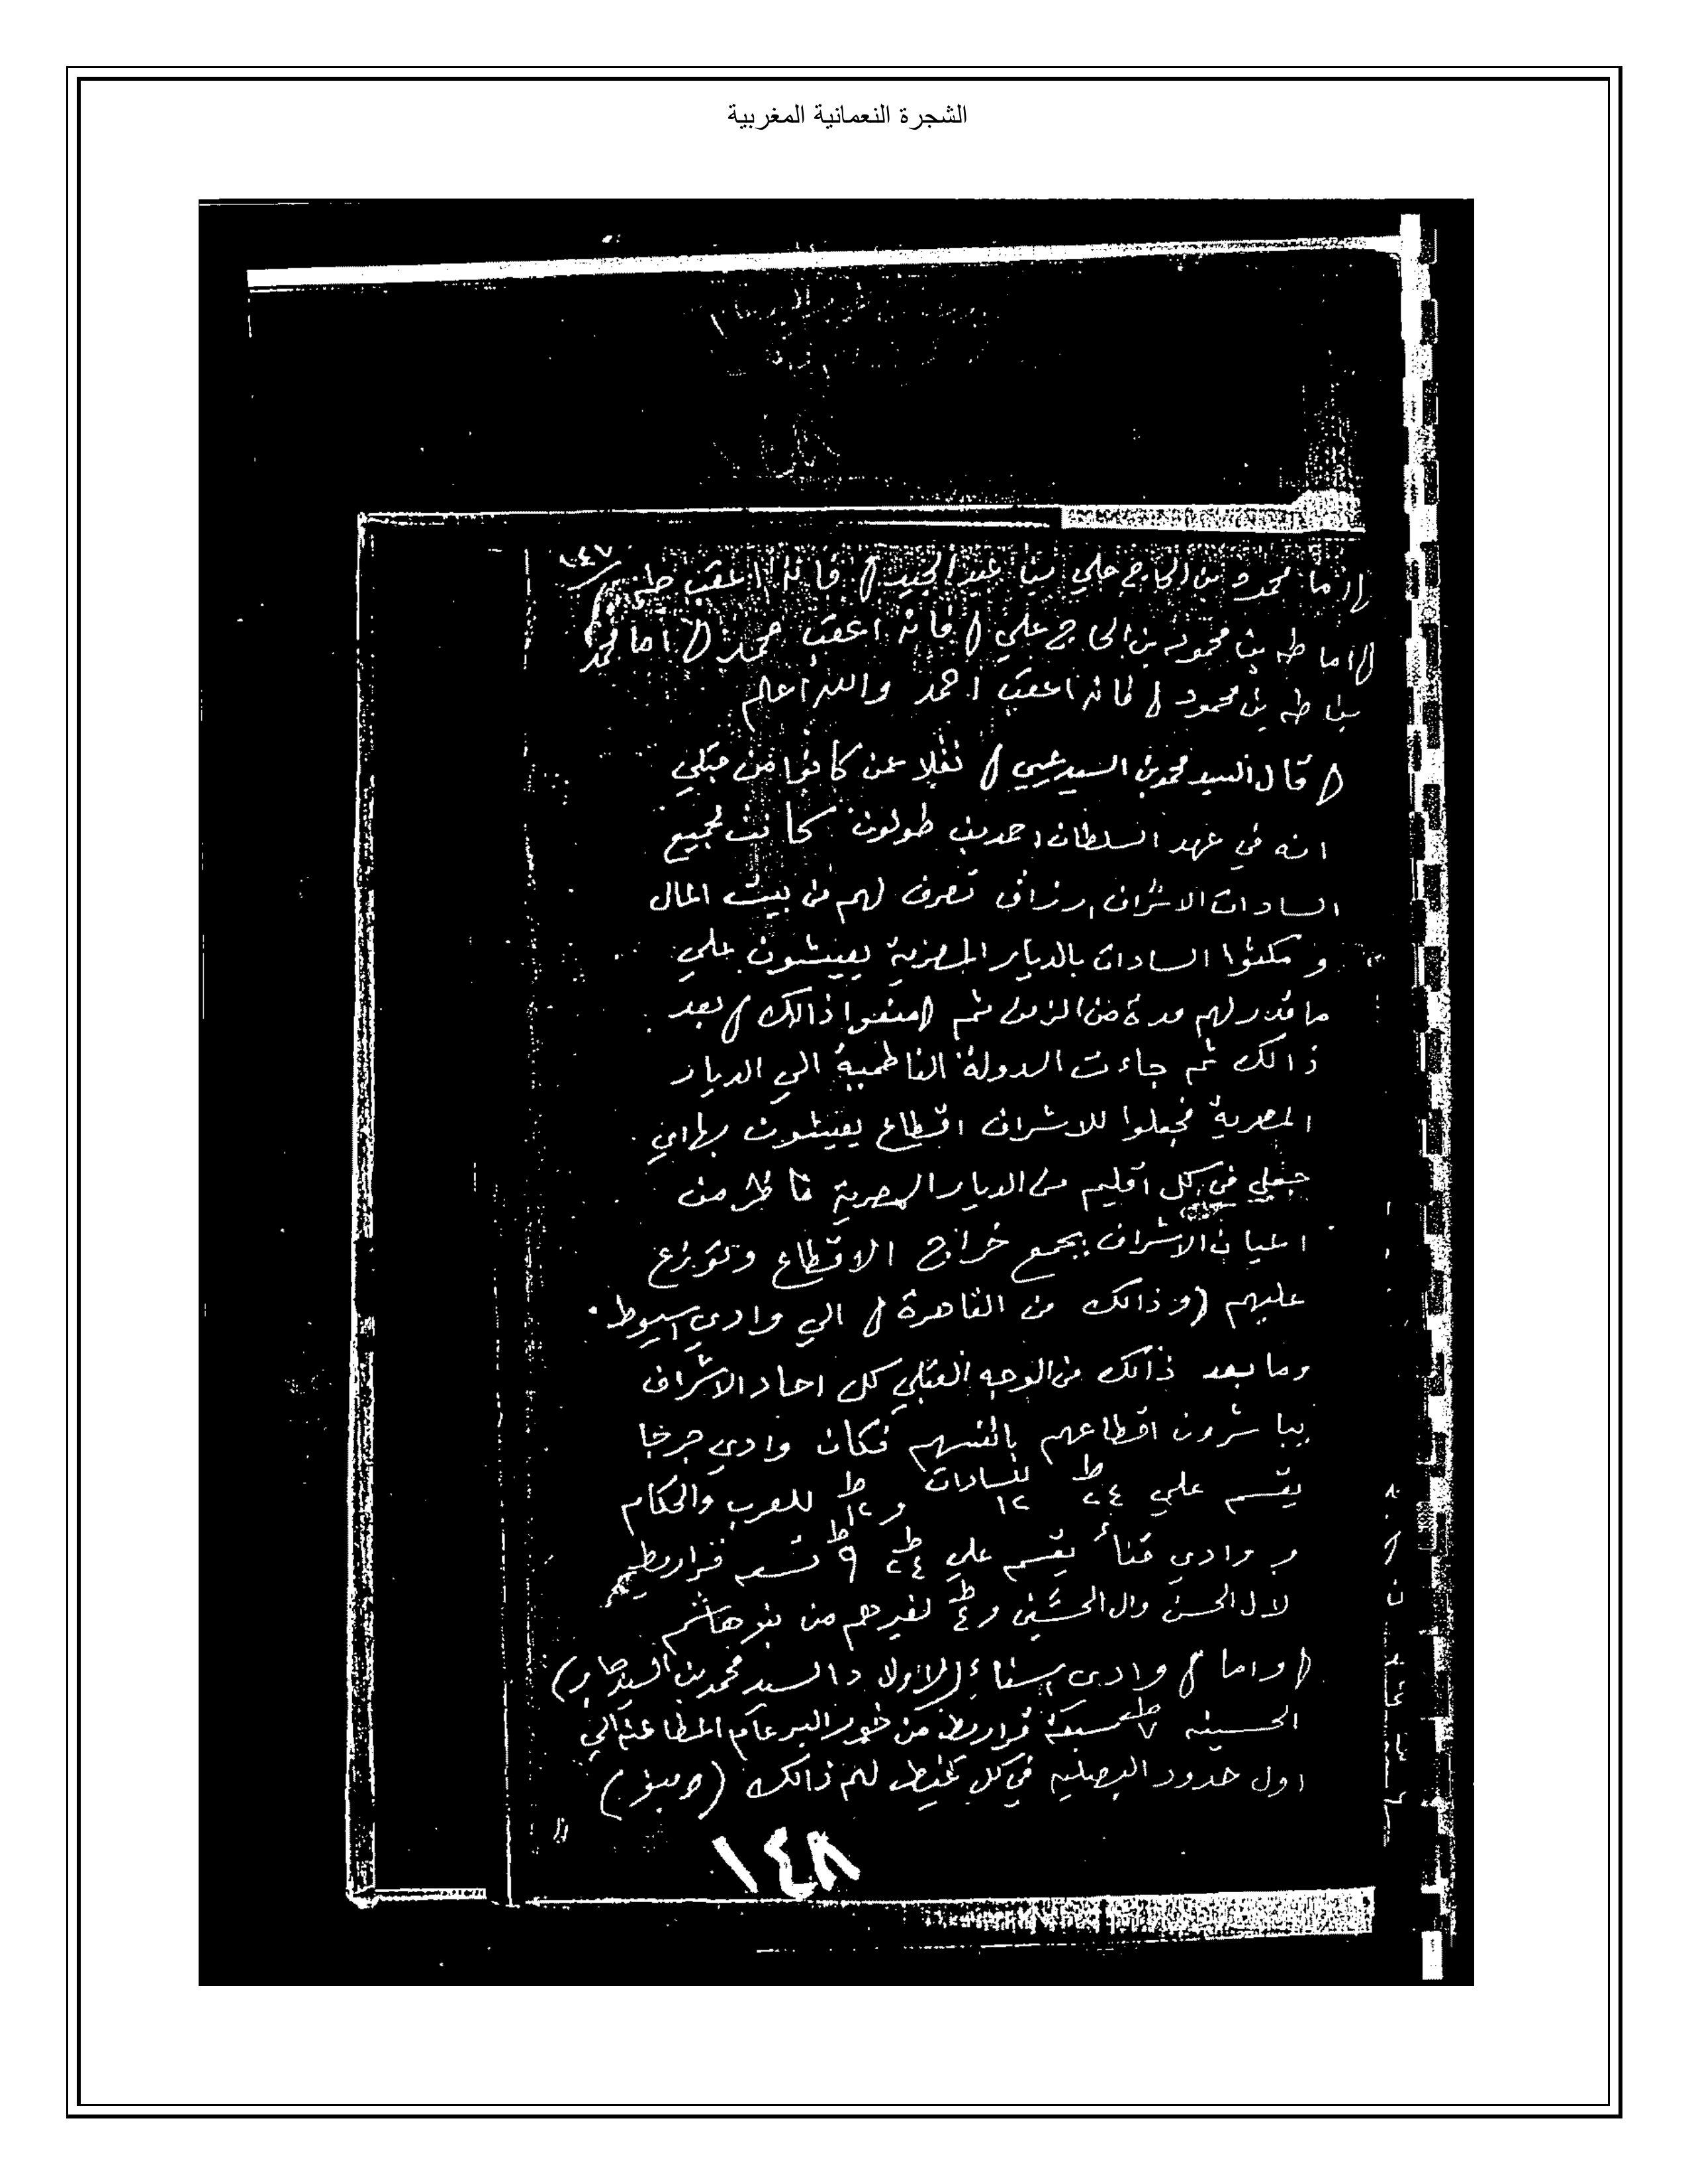 الشجرة النعمانية المغربية
١٤٧
(اما محمود بن الحاج علي بنا عبد المجيد) فانه اعقب طه
(اما طه بن محمود بن الحاج علي) فانه اعقب محمد (اما محمد
بنا طه بن محمود) فانه اعقب احمد والله اعلم
(قال السيد محمد بن السيد عيسي) نقلا عن كانوا من قبلي
انه في عهد السلطان احمد بن طولون كانت لجميع
السادات الاشراف ارزاق تصرف لهم من بيت المال
و مكثوا السادات بالديار المصرية يعيشون علي
ما قدر لهم مدة من الزمن ثم (منعوا ذالك) بعد
ذالك ثم جاءت الدولة الفاطمية الي الديار
المصرية فجعلوا للاشراف اقطاع يعيشون بها اي
جعلي في كل اقليم من الديار المصرية ناظر من
اعيان الاشراف يجمع خراج الاقطاع وتوزع
عليهم (وذالك من القاهرة) الي وادي اسيوط
وما بعد ذالك من الوجه القبلي كل احاد الاشراف
يباشرون اقطاعهم بانفسهم فكان وادي جرجا
يقسم علي ٢٤ط ١٢ لسادات و١٢ط للعرب والحكام
و وادي قناء يقسم علي ٢٤ط ٩ط تسعه قراريط
لال الحسن وال الحسين و٤ط لغيرهم من بنو هاشم
(واما) وادي اسناء (لاولاد السيد محمد بن السيد جابر)
الحسينه ٧ط سبعة قراريط من خور البرعام المطاعنه الي
اول حدود البصليه في كل غيط لهم ذالك
١٤٨